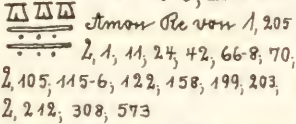 Amon Re von 1, 205
2, 1, 11, 24, 42, 66-8; 70;
2, 105; 115-6; 122; 158; 199; 203;
2, 212; 308; 573